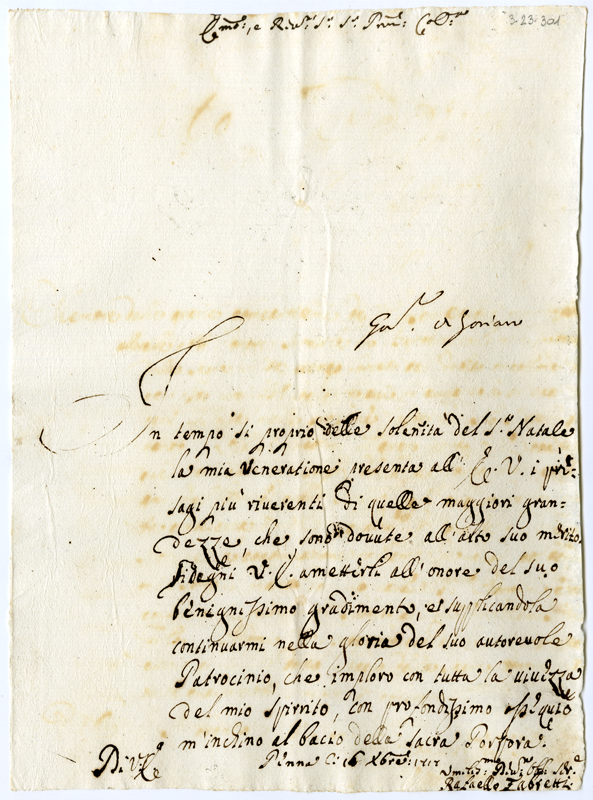 3-23-301
Em̃o:, e Reu.mo Sr. Sr. Prñe: Col.mo
In tempo si proprio delle solenità del S.to Natale
la mia Veneratione presenta all' E. V. i pre-
sagi più riuerenti di quelle maggiori gran-
dezze, che sono douute all'alto suo merito.
Si degni V. E. ametterli all'onore del suo
benignissimo gradimento, e supplicandola
continuarmi nella gloria del suo autoreuole
Patrocinio, che imploro con tutta la viuezza
del mio spirrito, con profondissimo ossequio
m'inchino al bacio della sacra Porpora.
Di V. E.
Penna li 16 Xbre: 1717
Vmiliss.mo Diu.mo Obl. Ser.e
Rafaello Fabretti